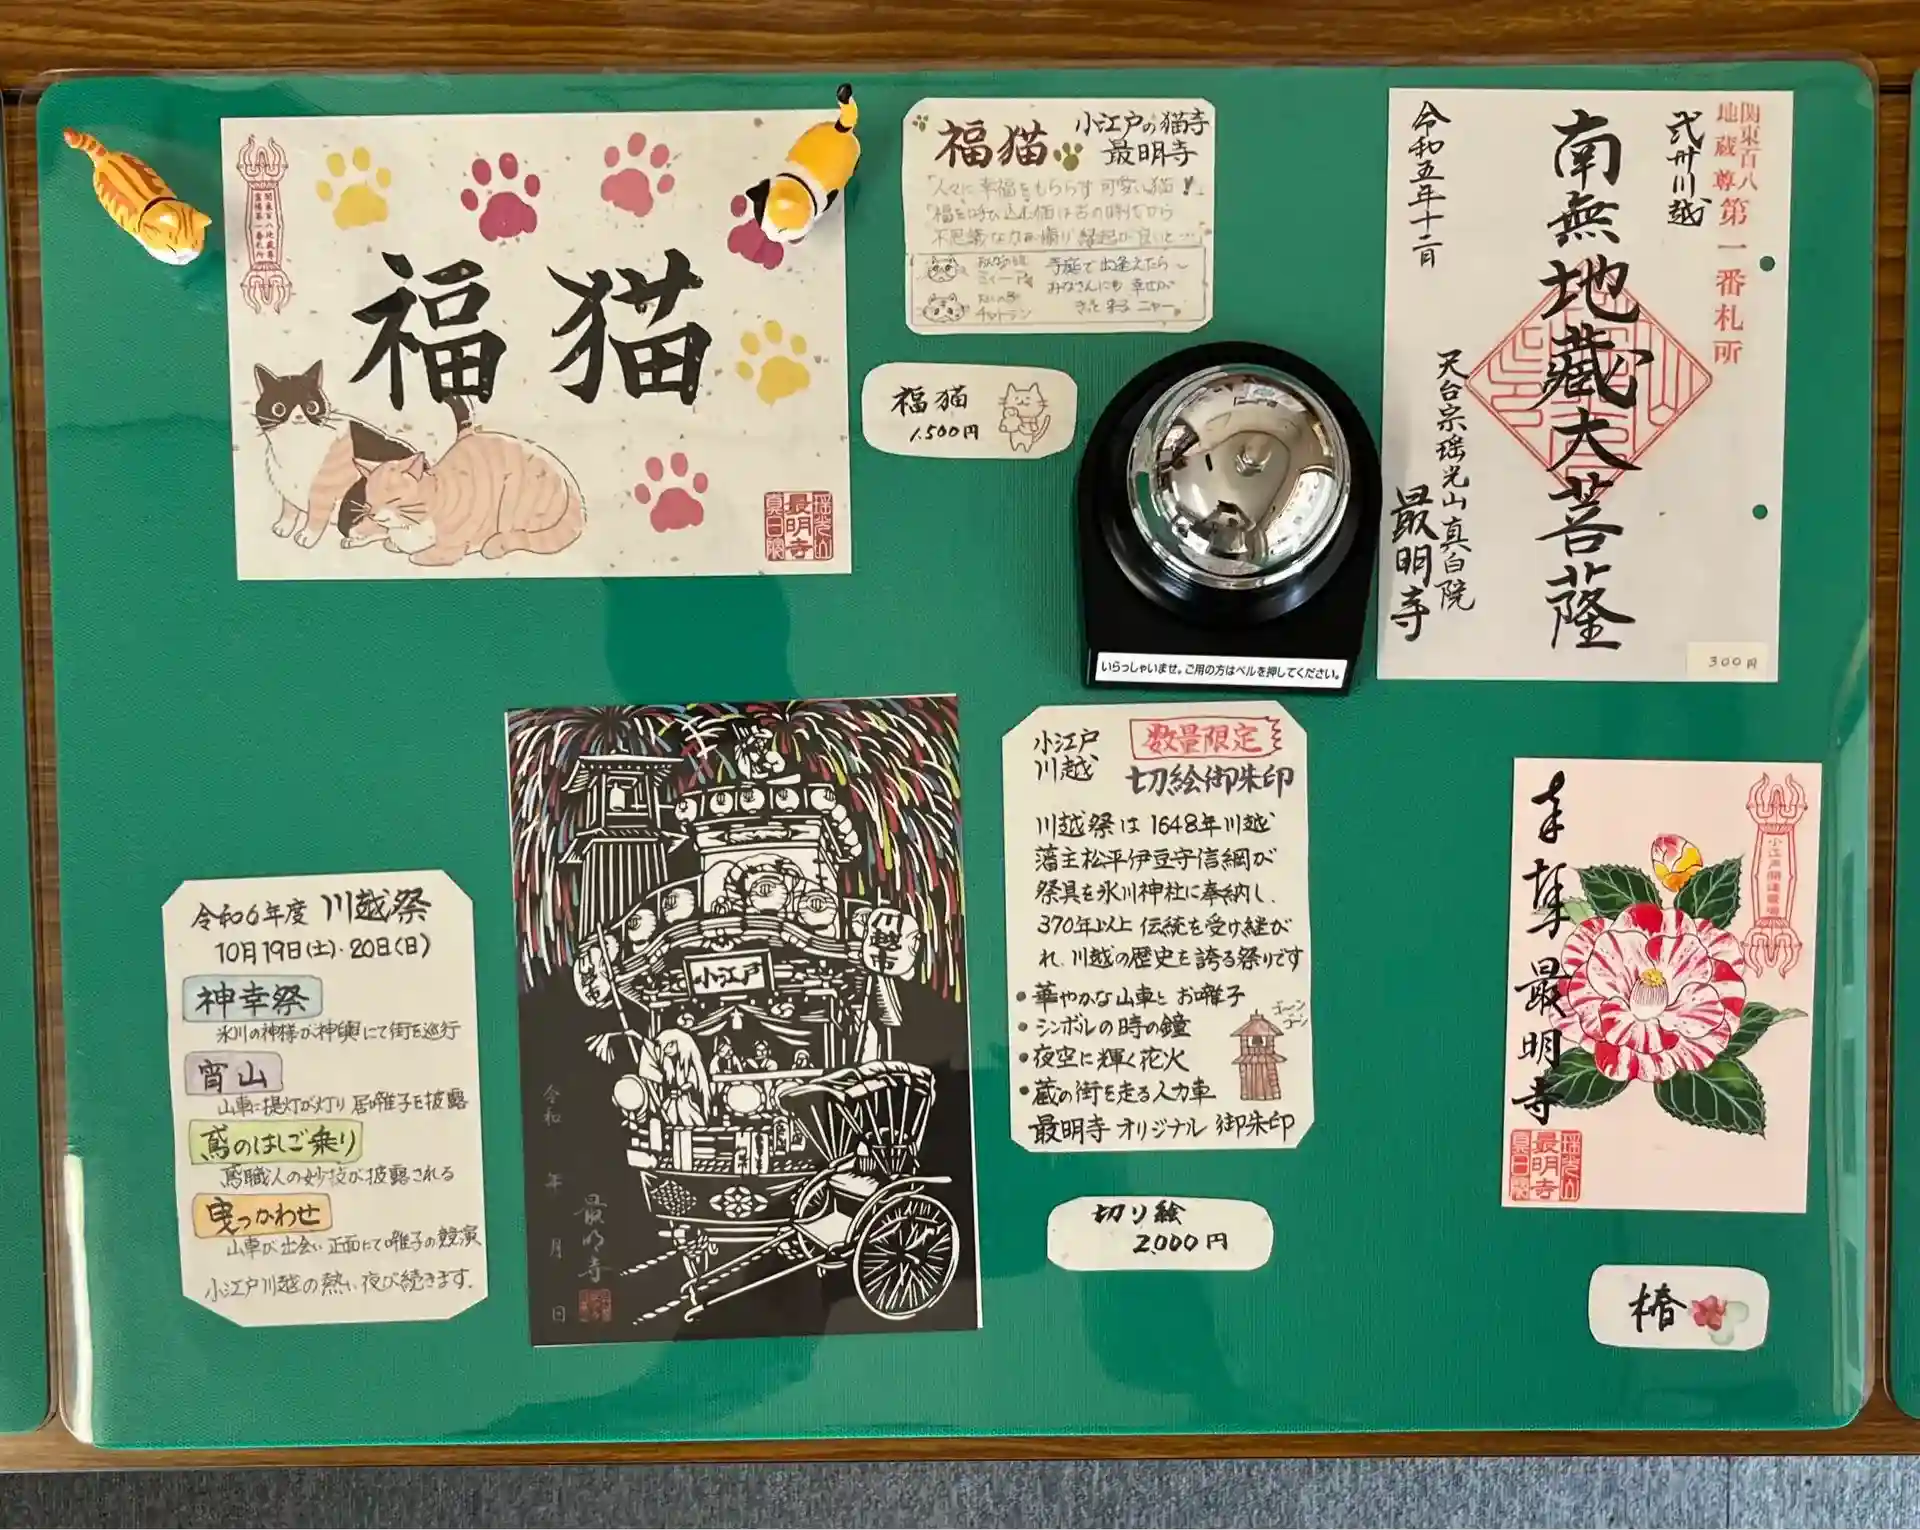 関東百八地蔵尊
霊場第一番札所
福猫
瑶光山
最明寺
真白院
福猫
小江戸の猫寺
最明寺
「人々に幸福をもたらす可愛い猫」
「福を呼び込む猫は古の時代から
不思議な力が備り縁起が良いと…
寺庭で出逢えたら
みなさんにも幸せが
きっと来る ニャー
チャトラン
福猫
1,500円
いらっしゃいませ。ご用の方はベルを押してください。
関東百八
地蔵尊第一番札所
弐卅川越
南無地蔵大菩薩
天台宗瑶光山真白院
最明寺
令和五年十二月
300円
令和6年度 川越祭
10月19日(土)・20日(日)
神幸祭
氷川の神様が神輿にて街を巡行
宵山
山車に提灯が灯り居囃子を披露
鳶のはしご乗り
鳶職人の妙技が披露される
曳っかわせ
山車が出会い正面にて囃子の競演
小江戸川越の熱い夜が続きます。
川越市
小江戸
令和 年 月 日
最明寺
小江戸
川越
数量限定
切絵御朱印
川越祭は1648年川越
藩主松平伊豆守信綱が
祭具を氷川神社に奉納し、
370年以上伝統を受け継が
れ、川越の歴史を誇る祭りです
・華やかな山車とお囃子
・シンボルの時の鐘
・夜空に輝く花火
・蔵の街を走る人力車
最明寺オリジナル御朱印
ゴーン
ゴーン
切り絵
2,000円
奉拝
最明寺
小江戸開運霊場
瑶光山
最明寺
真白院
椿